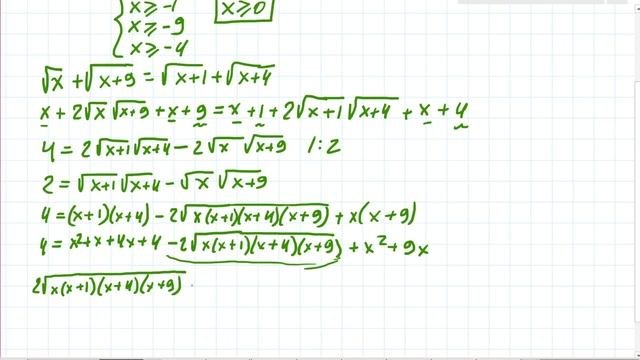 x ⩾ -1 x ⩾ 0
x ⩾ -9
x ⩾ -4
√x + √(x+9) = √(x+1) + √(x+4)
x + 2√x √(x+9) + x + 9 = x + 1 + 2√(x+1) √(x+4) + x + 4
4 = 2√(x+1) √(x+4) - 2√x √(x+9) | : 2
2 = √(x+1) √(x+4) - √x √(x+9)
4 = (x+1)(x+4) - 2√(x(x+1)(x+4)(x+9)) + x(x+9)
4 = x² + x + 4x + 4 - 2√(x(x+1)(x+4)(x+9)) + x² + 9x
2√(x(x+1)(x+4)(x+9))